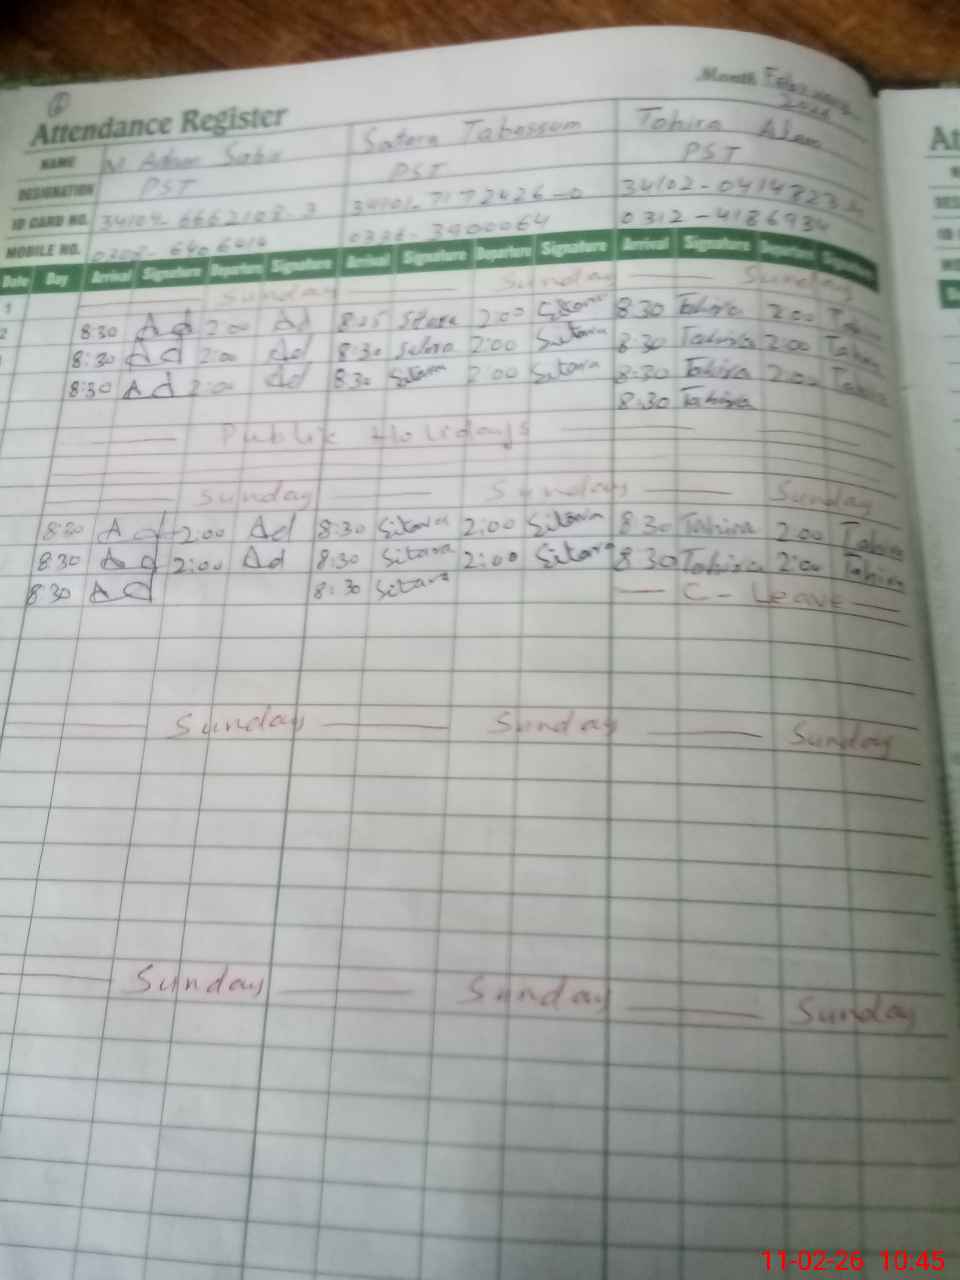 Month February
Attendance Register
NAME Sabir Satara Tabassum Tahira Alam
DESIGNATION PST PST PST
ID CARD NO. 34104-6662108-3 34101-7172426-0 34102-0414823-
MOBILE NO. 0336-3900064 0312-4186934
Date Day Arrival Signature Departure Signature Arrival Signature Departure Signature Arrival Signature Departure Signature
1 Sunday Sunday Sunday
2 8:30 Ad 2:00 Ad 8:25 Sitara 2:00 Sitara 8:30 Tahira 2:00 Tahira
8:30 Ad 2:00 Ad 8:30 Sitara 2:00 Sitara 8:30 Tahira 2:00 Tahira
8:30 Ad 2:00 Ad 8:30 Sitara 2:00 Sitara 8:30 Tahira 2:00 Tahira
8:30 Tahira
Public Holidays
Sunday Sunday Sunday
8:30 Ad 2:00 Ad 8:30 Sitara 2:00 Sitara 8:30 Tahira 2:00 Tahira
8:30 Ad 2:00 Ad 8:30 Sitara 2:00 Sitara 8:30 Tahira 2:00 Tahira
8:30 Ad 8:30 Sitara C-Leave
Sunday Sunday Sunday
Sunday Sunday Sunday
11-02-26 10:45